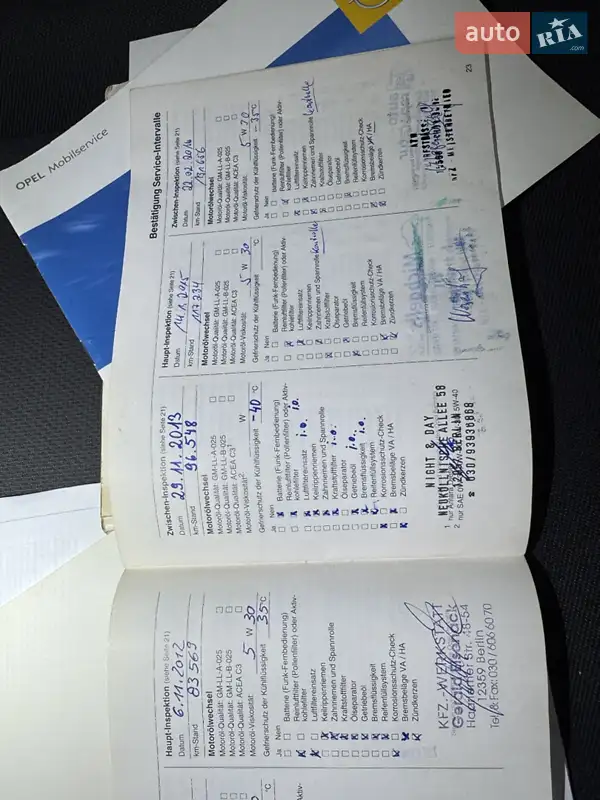 auto RIA .com
OPEL Mobilservice
23
Bestätigung Service-Intervalle
Zwischen-Inspektion (siehe Seite 21)
Datum 22.02.2016
km-Stand
Motorölwechsel
Motoröl-Qualität: GM-LL-A-025
Motoröl-Qualität: GM-LL-B-025
Motoröl-Qualität: ACEA C3
Motoröl-Viskosität: 5 W 30
Gefrierschutz der Kühlflüssigkeit -35 °C
Ja Nein
Batterie (Funk-Fernbedienung)
Reinluftfilter (Pollenfilter) oder Aktiv-
kohlefilter
Luftfiltereinsatz
Keilrippenriemen
Zahnriemen und Spannrolle
Kraftstofffilter
Ölseparator
Getriebeöl
Bremsflüssigkeit
Reifenfüllsystem
Korrosionsschutz-Check
Bremsbeläge VA / HA
Zündkerzen
Haupt-Inspektion (siehe Seite 21)
Datum 14.1.2015
km-Stand 112234
Motorölwechsel
Motoröl-Qualität: GM-LL-A-025
Motoröl-Qualität: GM-LL-B-025
Motoröl-Qualität: ACEA C3
Motoröl-Viskosität: 5 W 30
Gefrierschutz der Kühlflüssigkeit °C
Ja Nein
Batterie (Funk-Fernbedienung)
Reinluftfilter (Pollenfilter) oder Aktiv-
kohlefilter
Luftfiltereinsatz
Keilrippenriemen
Zahnriemen und Spannrolle
Kraftstofffilter
Ölseparator
Getriebeöl
Bremsflüssigkeit
Reifenfüllsystem
Korrosionsschutz-Check
Bremsbeläge VA / HA
Zündkerzen
Zwischen-Inspektion (siehe Seite 21)
Datum 29.11.2013
km-Stand 96.548
Motorölwechsel
Motoröl-Qualität: GM-LL-A-025
Motoröl-Qualität: GM-LL-B-025
Motoröl-Qualität: ACEA C3
Motoröl-Viskosität W
Gefrierschutz der Kühlflüssigkeit -40 °C
Ja Nein
Batterie (Funk-Fernbedienung)
Reinluftfilter (Pollenfilter) oder Aktiv-
kohlefilter i.o.
Luftfiltereinsatz i.o.
Keilrippenriemen
Zahnriemen und Spannrolle
Kraftstofffilter i.o.
Ölseparator
Getriebeöl i.o.
Bremsflüssigkeit i.o.
Reifenfüllsystem
Korrosionsschutz-Check
Bremsbeläge VA / HA
Zündkerzen
NIGHT & DAY
NEUKÖLLNISCHE ALLEE 58
BERLIN
☎ 030/93936868
Haupt-Inspektion (siehe Seite 21)
Datum 6.11.2012
km-Stand 83569
Motorölwechsel
Motoröl-Qualität: GM-LL-A-025
Motoröl-Qualität: GM-LL-B-025
Motoröl-Qualität: ACEA C3
Motoröl-Viskosität: 5 W 30
Gefrierschutz der Kühlflüssigkeit 35 °C
Ja Nein
Batterie (Funk-Fernbedienung)
Reinluftfilter (Pollenfilter) oder Aktiv-
kohlefilter
Luftfiltereinsatz
Keilrippenriemen
Zahnriemen und Spannrolle
Kraftstofffilter
Ölseparator
Getriebeöl
Bremsflüssigkeit
Reifenfüllsystem
Korrosionsschutz-Check
Bremsbeläge VA / HA
Zündkerzen
KFZ-WERKSTATT
12359 Berlin
Tel & Fax 030/606 60 70